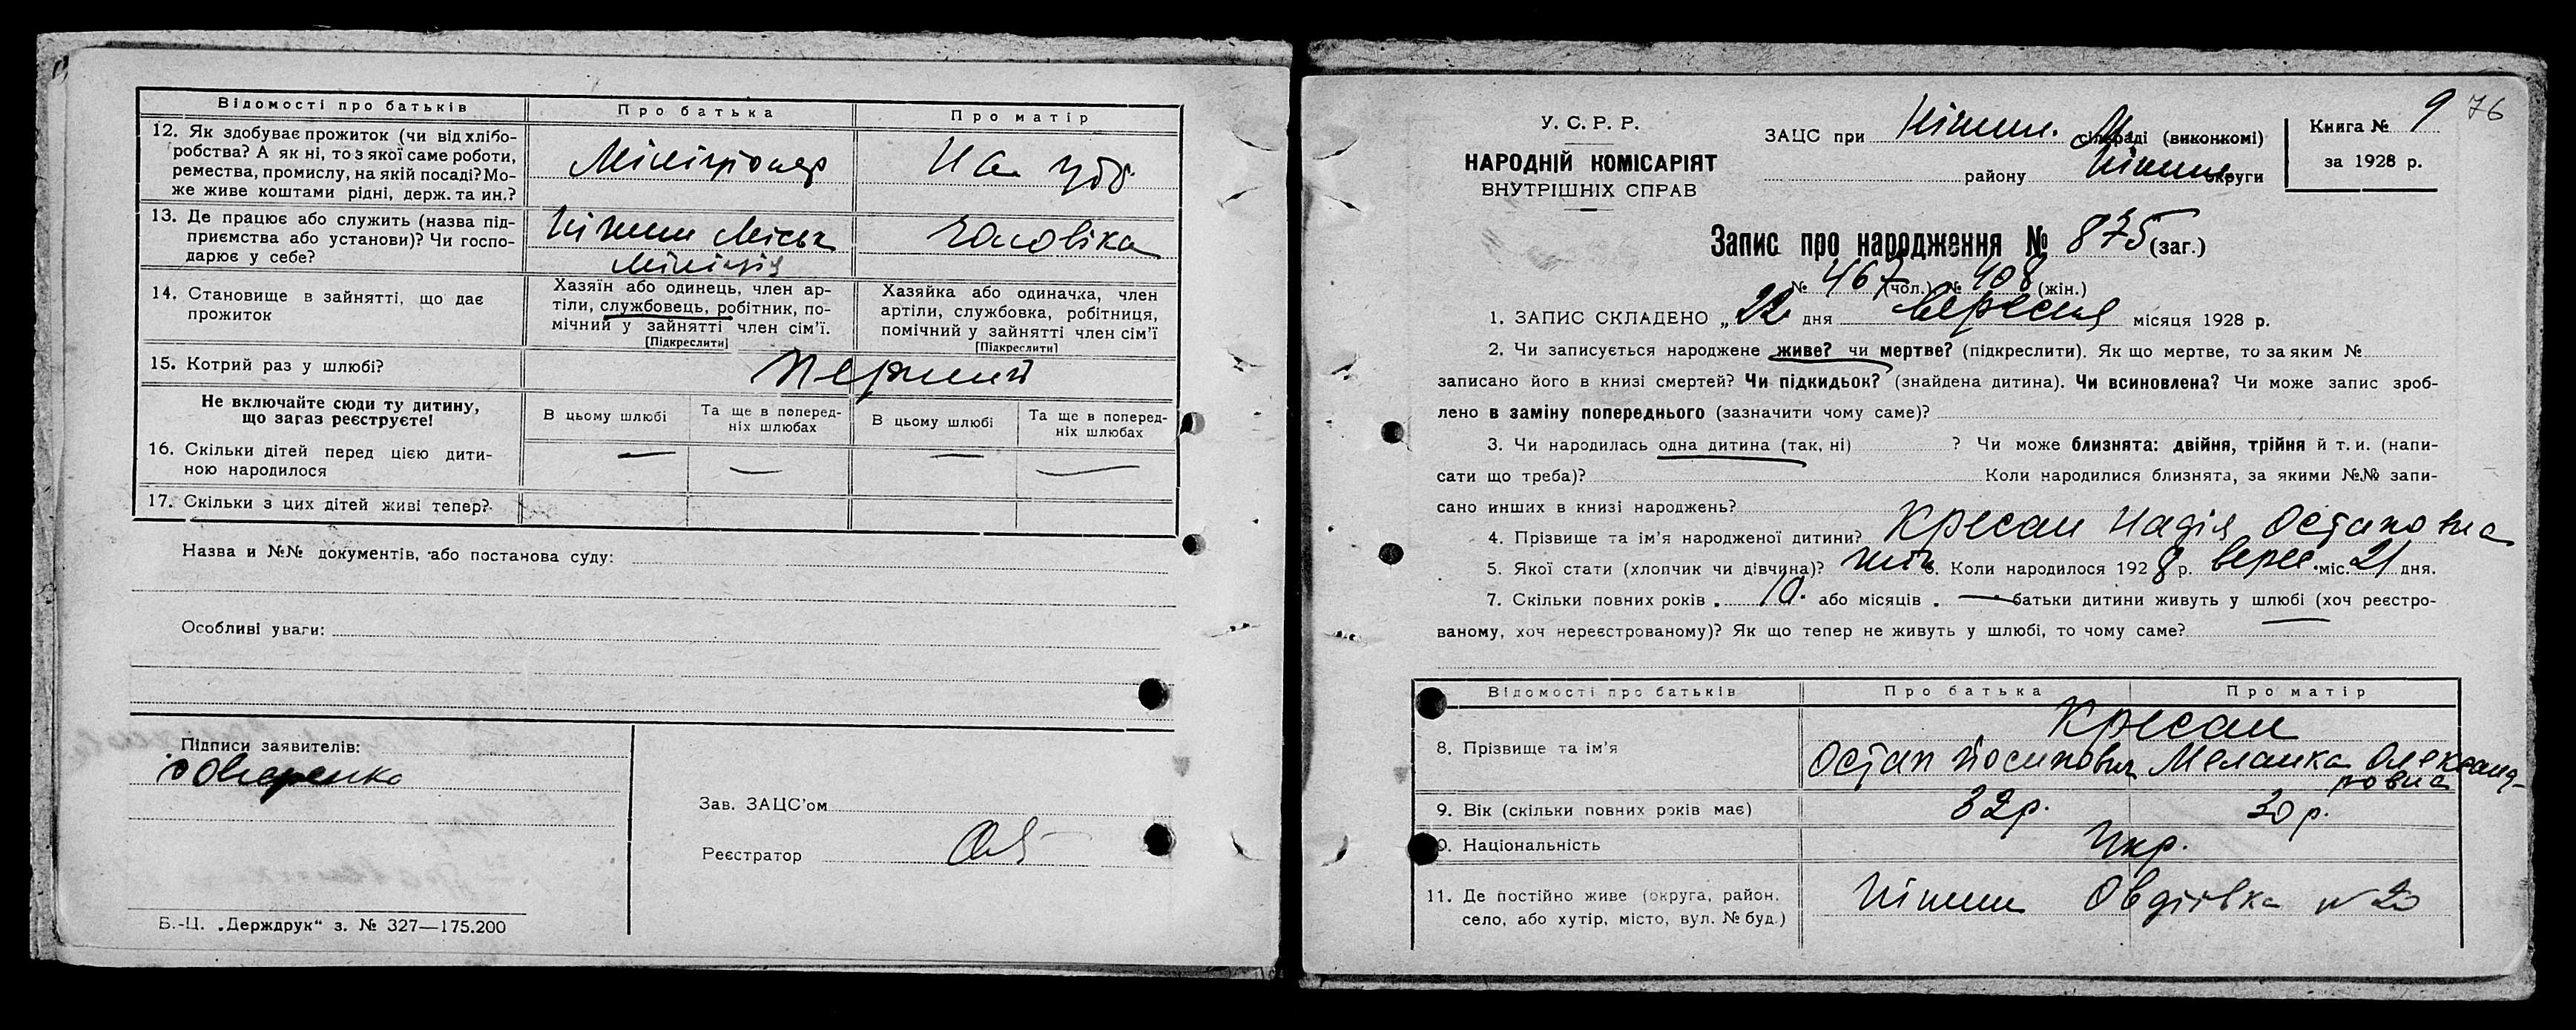 Відомості про батьків
Про батька
Про матір
12. Як здобуває прожиток (чи від хлібо-
робства? А як ні, то з якої саме роботи,
ремества, промислу, на якій посаді? Мо-
же живе коштами рідні, держ. та ин.?
Міліціонер
На утр.
13. Де працює або служить (назва під-
приємства або установи)? Чи госпо-
дарює у себе?
Ніжин Міськ
Міліція
чоловіка
14. Становище в зайнятті, що дає
прожиток
Хазяїн або одинець, член ар-
тіли, службовець, робітник, по-
мічний у зайнятті член сім'ї.
[Підкреслити]
Хазяйка або одиначка, член
артіли, службовка, робітниця,
помічний у зайнятті член сім'ї
[Підкреслити]
15. Котрий раз у шлюбі?
Перший
Не включайте сюди ту дитину,
що зараз реєструєте!
В цьому шлюбі
Та ще в поперед-
ніх шлюбах
В цьому шлюбі
Та ще в поперед-
ніх шлюбах
16. Скільки дітей перед цією дити-
ною народилося
— — — —
17. Скільки з цих дітей живі тепер?
Назва и №№ документів, або постанова суду:
Особливі уваги:
Підписи заявителів:
Зав. ЗАЦС'ом
Реєстратор
Б.-Ц. „Держдрук“ з. № 327—175.200
76
У. С. Р. Р.
НАРОДНІЙ КОМІСАРІЯТ
ВНУТРІШНІХ СПРАВ
ЗАЦС при Ніжин. М. сільраді (виконкомі)
району Ніжин округи
Книга № 9
за 1928 р.
Запис про народження № 875 (заг.)
№ 467 (чол.) № 408 (жін.)
1. ЗАПИС СКЛАДЕНО „ 22 дня вересня місяця 1928 р.
2. Чи записується народжене живе? чи мертве? (підкреслити). Як що мертве, то за яким №
записано його в книзі смертей? Чи підкидьок? (знайдена дитина). Чи всиновлена? Чи може запис зроб-
лено в заміну попереднього (зазначити чому саме)?
3. Чи народилась одна дитина (так, ні) ? Чи може близнята: двійня, трійня й т. и. (напи-
сати що треба)? Коли народилися близнята, за якими №№ запи-
сано инших в книзі народжень?
4. Прізвище та ім'я народженої дитини? Кресан Надія Остаповна
5. Якої стати (хлопчик чи дівчина)? жін 6. Коли народилося 1928 р. верес. міс. 21 дня.
7. Скільки повних років . 10. або місяців . — батьки дитини живуть у шлюбі (хоч реєстро-
ваному, хоч нереєстрованому)? Як що тепер не живуть у шлюбі, то чому саме?
Відомості про батьків
Про батька
Про матір
8. Прізвище та ім'я
Кресан
Остап Йосипович
Меланка Олександ-
ровна
9. Вік (скільки повних років має)
32 р.
30 р.
10. Національність
Укр.
11. Де постійно живе (округа, район,
село, або хутір, місто, вул. № буд.)
Ніжин Овдіївка № 20